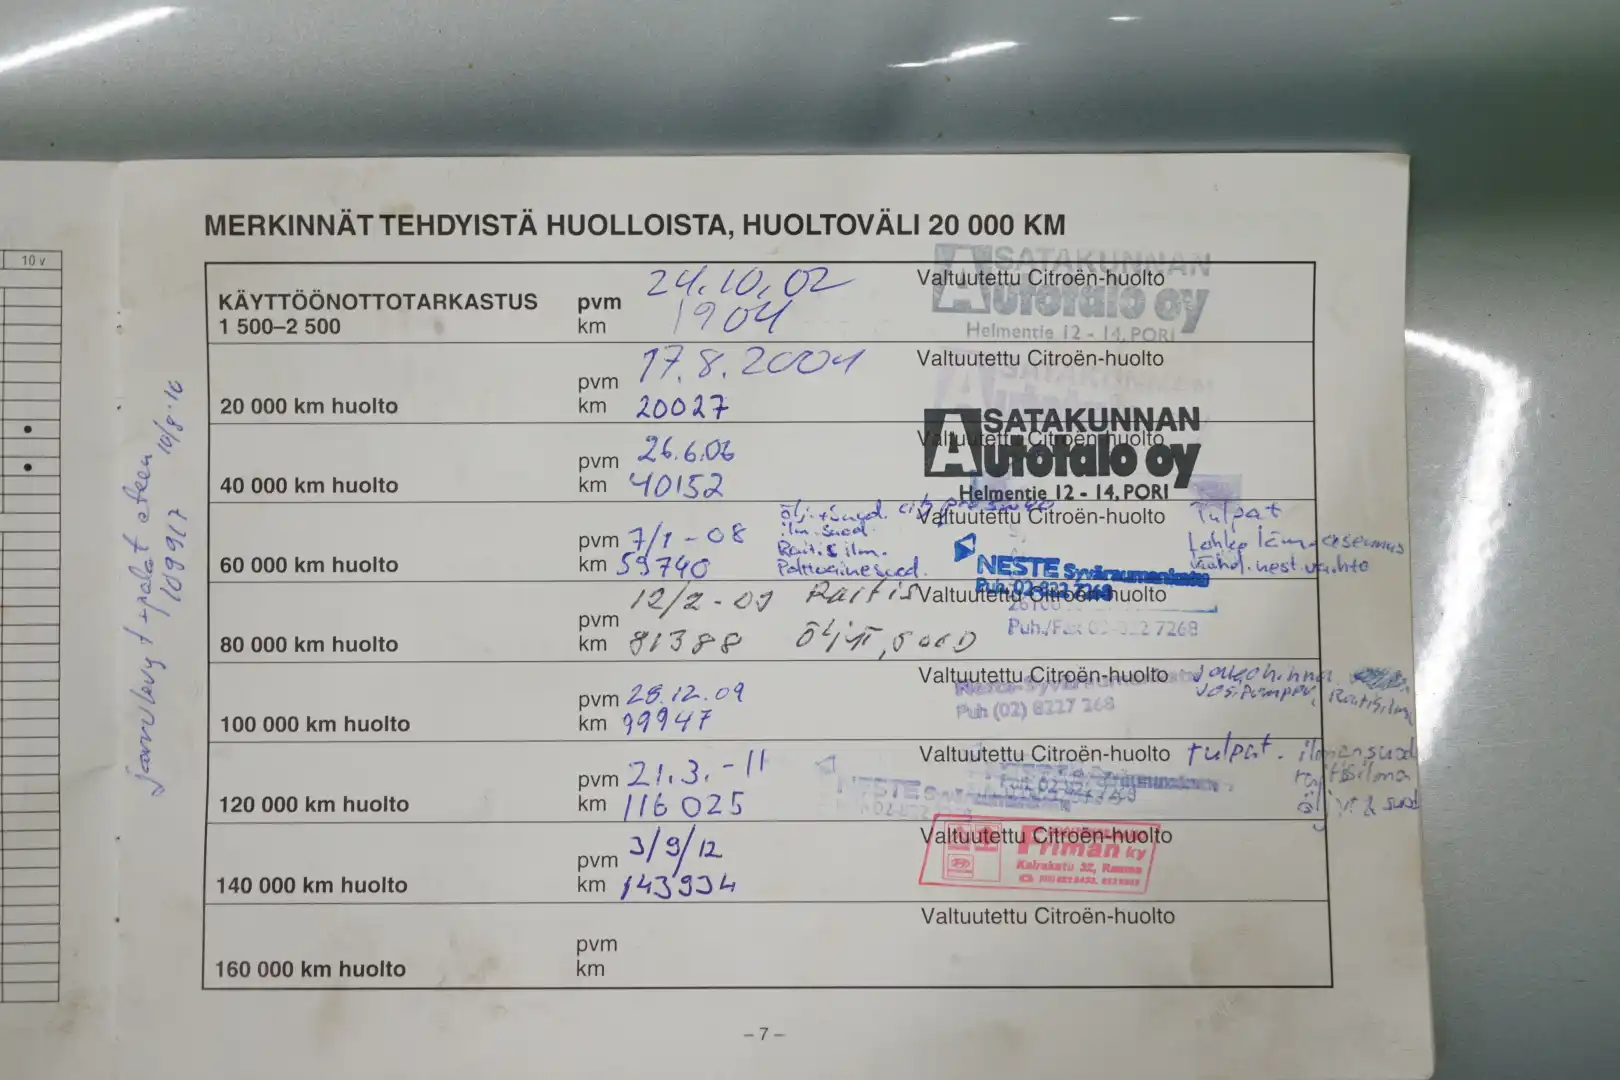 10 v
MERKINNÄT TEHDYISTÄ HUOLLOISTA, HUOLTOVÄLI 20 000 KM
KÄYTTÖÖNOTTOTARKASTUS
1 500–2 500
pvm 24.10.02
km 1904
Valtuutettu Citroën-huolto
SATAKUNNAN
Autotalo oy
Helmentie 12 - 14, PORI
20 000 km huolto
pvm 17.8.2004
km 20027
Valtuutettu Citroën-huolto
40 000 km huolto
pvm 26.6.06
km 40152
Valtuutettu Citroën-huolto
SATAKUNNAN
Autotalo oy
Helmentie 12 - 14, PORI
60 000 km huolto
pvm 7/1 - 08
km 59740
ilm. suod.
Rait. s ilm.
Polttoainesuod.
Valtuutettu Citroën-huolto
NESTE Syväraumankatu
Puh. 02-822 7268
Tulpat
nest. vaihto
80 000 km huolto
pvm 12/2 - 09 Raitis
km 81388 Öljyt, suod
Valtuutettu Citroën-huolto
Puh./Fax 02-822 7268
100 000 km huolto
pvm 28.12.09
km 99947
Valtuutettu Citroën-huolto
Puh (02) 8227 268
Jakohihna
Vesipumppu, Raitisilma
120 000 km huolto
pvm 21.3.-11
km 116 025
Valtuutettu Citroën-huolto
NESTE
tulpat. ilmansuod
raitisilma
öljyt & suod
140 000 km huolto
pvm 3/9/12
km 143934
Valtuutettu Citroën-huolto
Friman ky
Kairakatu 32, Rauma
160 000 km huolto
pvm
km
Valtuutettu Citroën-huolto
– 7 –
jarrulevyt + palat eteen 10/8-16